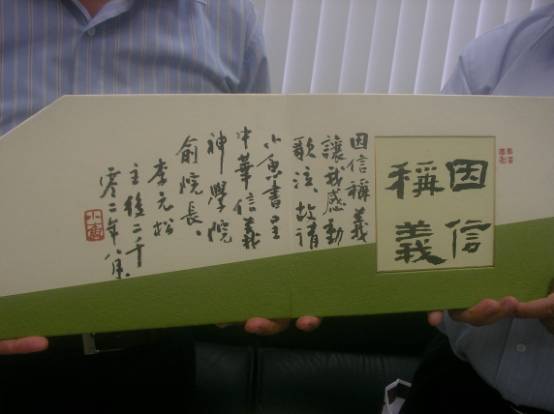 因信
稱義
因信稱義
讓我感動
歌泣，故請
小魚書呈
中華信義
神學院
俞院長。
李元松
主後二千
零二年
小魚